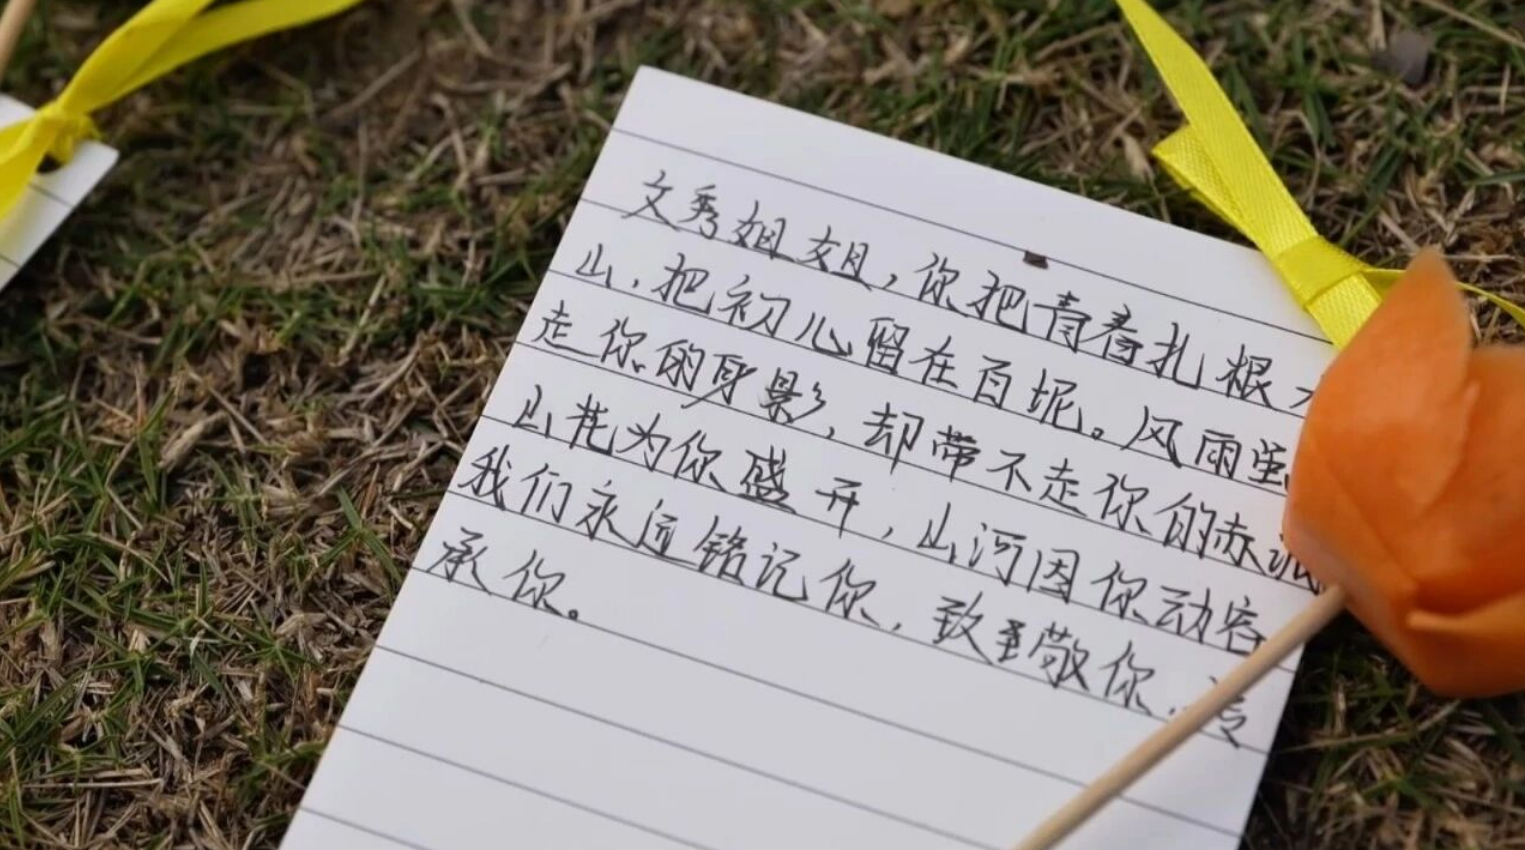 文秀姐姐，你把青春扎根
山，把初心留在百坭。风雨
走你的身影，却带不走你的赤
山花为你盛开，山河因你动容
我们永远铭记你，致敬你，
承你。